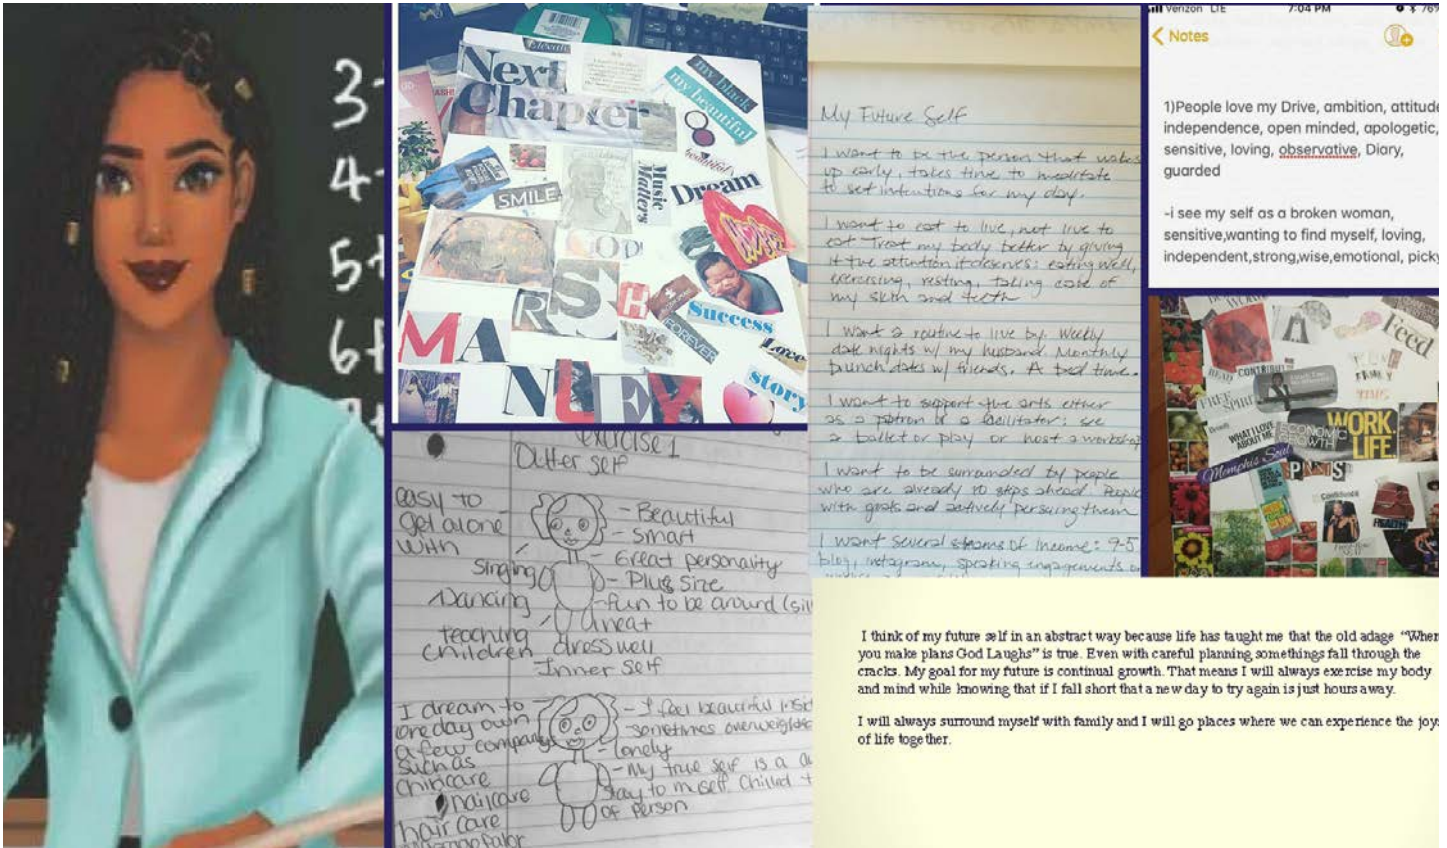 3-
4-
5+
6+
Next
Chapter
my black
my beautiful
beautiful
Music
Matters
Dream
SMILE.
GOD
MARSHA
FOREVER
Success
Love
story
MANLEY
exercise 1
Outter self
easy to
get alone
with
singing
Dancing
teaching
children
- Beautiful
- Smart
- Great personality
- Plus Size
- fun to be around (sil
neat
dress well
Inner self
I dream to
one day own
a few company
such as
Chilrcare
nailcare
hair care
- I feel beautiful insid
- Sometimes overweight
- lonely
- My true self is a
stay to myself. Chilled
of person
My Future Self
I want to be the person that wakes
up early, takes time to meditate
to set intentions for my day.
I want to eat to live, not live to
eat. Treat my body better by giving
it the attention it deserves: eating well,
exercising, resting, taking care of
my skin and teeth
I want a routine to live by. Weekly
date nights w/ my husband. Monthly
brunch dates w/ friends. A bed time.
I want to support the arts either
as a patron or a facilitator: see
a ballet or play or host a workshop
I want to be surrounded by people
who are already 10 steps ahead. People
with goals and actively persuing them
I want several streams of income: 9-5
blog, instagram, speaking engagements or
Verizon LTE
7:04 PM
76%
Notes
1)People love my Drive, ambition, attitude
independence, open minded, apologetic,
sensitive, loving, observative, Diary,
guarded
-i see my self as a broken woman,
sensitive,wanting to find myself, loving,
independent,strong,wise,emotional, picky
Feed
READ
CONTRIBUTE
FREE
SPIRIT
WHAT I LOVE
ABOUT ME
ECONOMIC
GROWTH
WORK.
LIFE.
Memphis Soul
Confidence
HEALTH
I think of my future self in an abstract way because life has taught me that the old adage “When
you make plans God Laughs” is true. Even with careful planning somethings fall through the
cracks. My goal for my future is continual growth. That means I will always exercise my body
and mind while knowing that if I fall short that a new day to try again is just hours away.
I will always surround myself with family and I will go places where we can experience the joys
of life together.